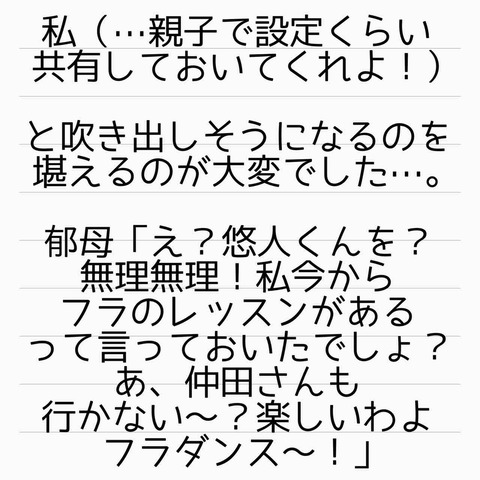 私（…親子で設定くらい
共有しておいてくれよ！）
と吹き出しそうになるのを
堪えるのが大変でした…。
郁母「え？悠人くんを？
無理無理！私今から
フラのレッスンがある
って言っておいたでしょ？
あ、仲田さんも
行かない〜？楽しいわよ
フラダンス〜！」